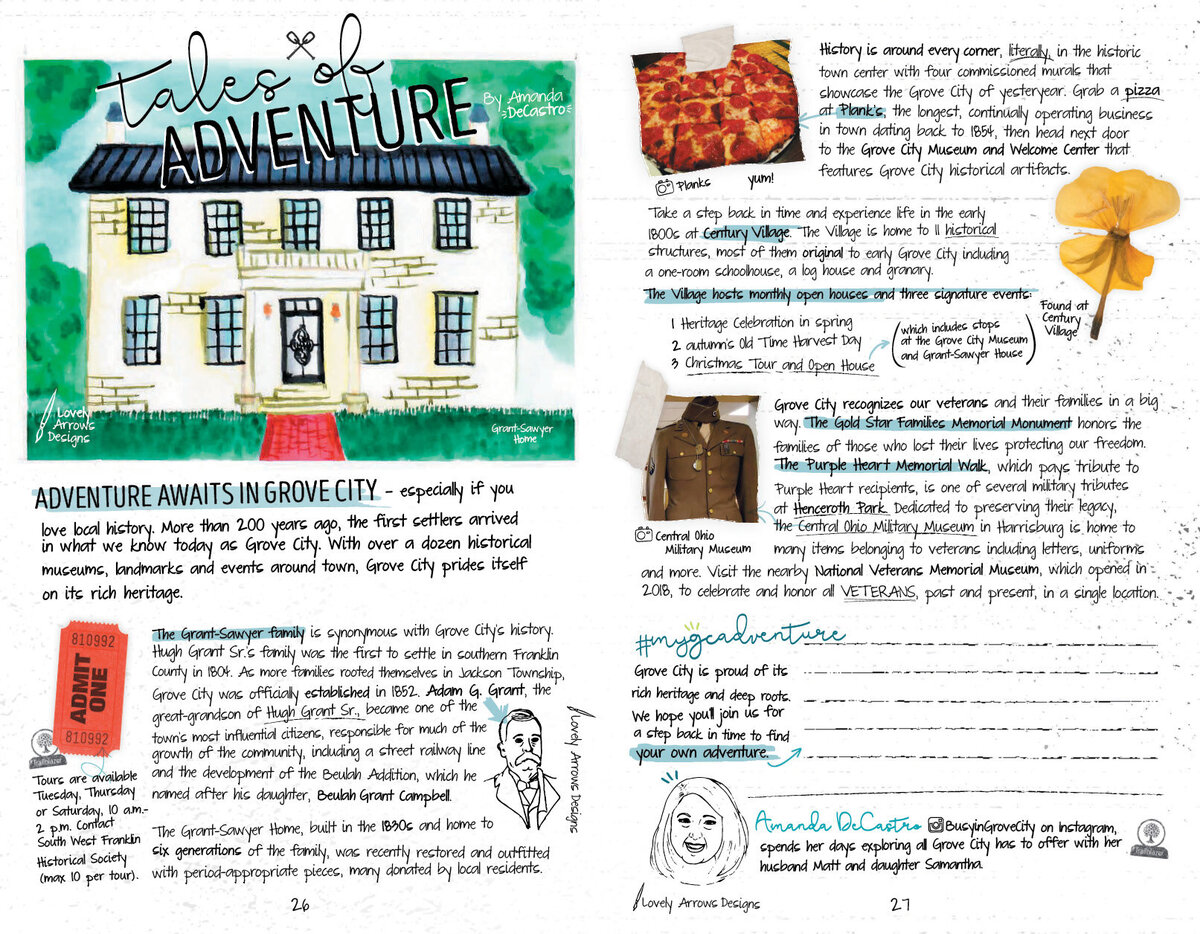 tales of
ADVENTURE
By Amanda
DeCastro
Lovely
Arrows
Designs
Grant-Sawyer
Home
ADVENTURE AWAITS IN GROVE CITY - especially if you
love local history. More than 200 years ago, the first settlers arrived
in what we know today as Grove City. With over a dozen historical
museums, landmarks and events around town, Grove City prides itself
on its rich heritage.
810992
ADMIT
ONE
810992
Trailblazer
Tours are available
Tuesday, Thursday
or Saturday, 10 a.m.-
2 p.m. Contact
South West Franklin
Historical Society
(max 10 per tour).
The Grant-Sawyer family is synonymous with Grove City's history.
Hugh Grant Sr.'s family was the first to settle in southern Franklin
County in 1804. As more families rooted themselves in Jackson Township,
Grove City was officially established in 1852. Adam G. Grant, the
great-grandson of Hugh Grant Sr., became one of the
town's most influential citizens, responsible for much of the
growth of the community, including a street railway line
and the development of the Beulah Addition, which he
named after his daughter, Beulah Grant Campbell.
Lovely Arrows Designs
The Grant-Sawyer Home, built in the 1830s and home to
six generations of the family, was recently restored and outfitted
with period-appropriate pieces, many donated by local residents.
26
Planks
yum!
History is around every corner, literally, in the historic
town center with four commissioned murals that
showcase the Grove City of yesteryear. Grab a pizza
at Plank's, the longest, continually operating business
in town dating back to 1854, then head next door
to the Grove City Museum and Welcome Center that
features Grove City historical artifacts.
Take a step back in time and experience life in the early
1800s at Century Village. The Village is home to 11 historical
structures, most of them original to early Grove City including
a one-room schoolhouse, a log house and granary.
The Village hosts monthly open houses and three signature events:
1 Heritage Celebration in spring
2 autumn's Old Time Harvest Day
3 Christmas Tour and Open House
(which includes stops
at the Grove City Museum
and Grant-Sawyer House)
Found at
Century
Village
Central Ohio
Military Museum
Grove City recognizes our veterans and their families in a big
way. The Gold Star Families Memorial Monument honors the
families of those who lost their lives protecting our freedom.
The Purple Heart Memorial Walk, which pays tribute to
Purple Heart recipients, is one of several military tributes
at Henceroth Park. Dedicated to preserving their legacy,
the Central Ohio Military Museum in Harrisburg is home to
many items belonging to veterans including letters, uniforms
and more. Visit the nearby National Veterans Memorial Museum, which opened in
2018, to celebrate and honor all VETERANS, past and present, in a single location.
#mygcadventure
Grove City is proud of its
rich heritage and deep roots.
We hope you'll join us for
a step back in time to find
your own adventure.
Amanda DeCastro BusyinGroveCity on Instagram,
spends her days exploring all Grove City has to offer with her
husband Matt and daughter Samantha.
Trailblazer
Lovely Arrows Designs
27